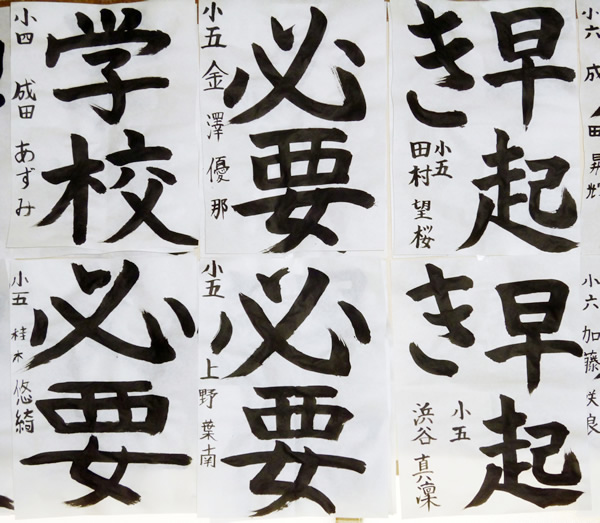 学校
小四 成田 あずみ
必要
小五 金澤優那
早起き
小五 田村望桜
小六 成田昇輝
必要
小五 桂木悠綺
必要
小五 上野葉南
早起き
小五 浜谷真凜
小六 加藤美良